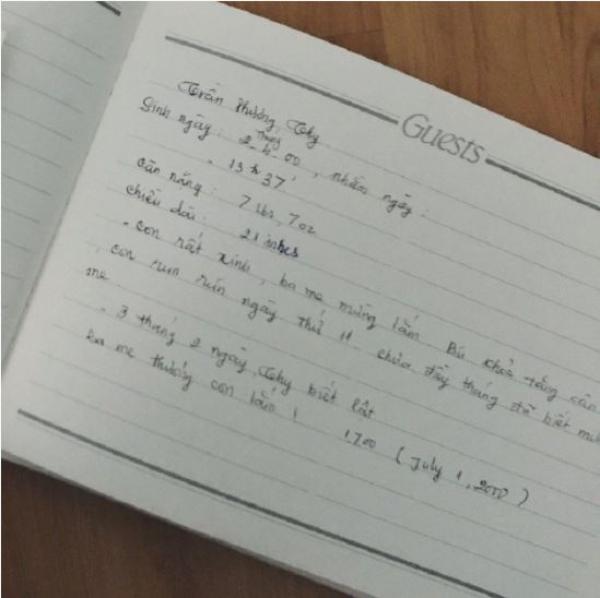 Guests
Trần Phương Thy
Sinh ngày: 2 tháng 4.00, nhằm ngày:
- 13 h 37'
Cân nặng: 7 lbs, 7 oz
Chiều dài: 21 inches
- Con rất xinh, ba mẹ mừng lắm. Bú khỏe tăng cân
, con run rún ngày thứ 11 chưa đầy tháng đã biết
mẹ
- 3 tháng 2 ngày Thy biết lật
Ba mẹ thương con lắm!
1.7.00 (July 1, 2000)